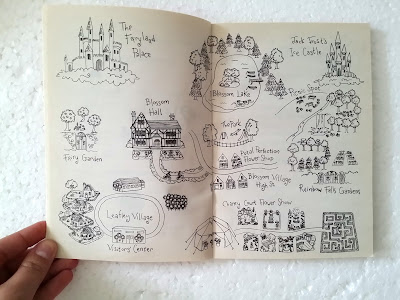 The
Fairyland
Palace
Jack Frost's
Ice Castle
Blossom Lake
Picnic Spot
Blossom
Hall
The Park
Fairy Garden
Petal Perfection
Flower Shop
Blossom Village
High St.
Rainbow Falls Gardens
Leafley Village
Visitors' Center
Charity Court Flower Show